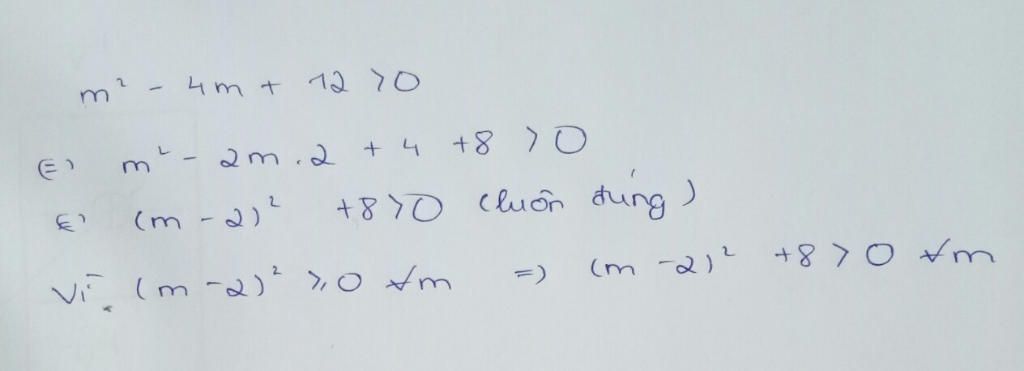 m² - 4m + 12 > 0
⇔ m² - 2m . 2 + 4 + 8 > 0
⇔ (m - 2)² + 8 > 0 (luôn đúng)
Vì (m - 2)² ≥ 0 ∀m => (m - 2)² + 8 > 0 ∀m